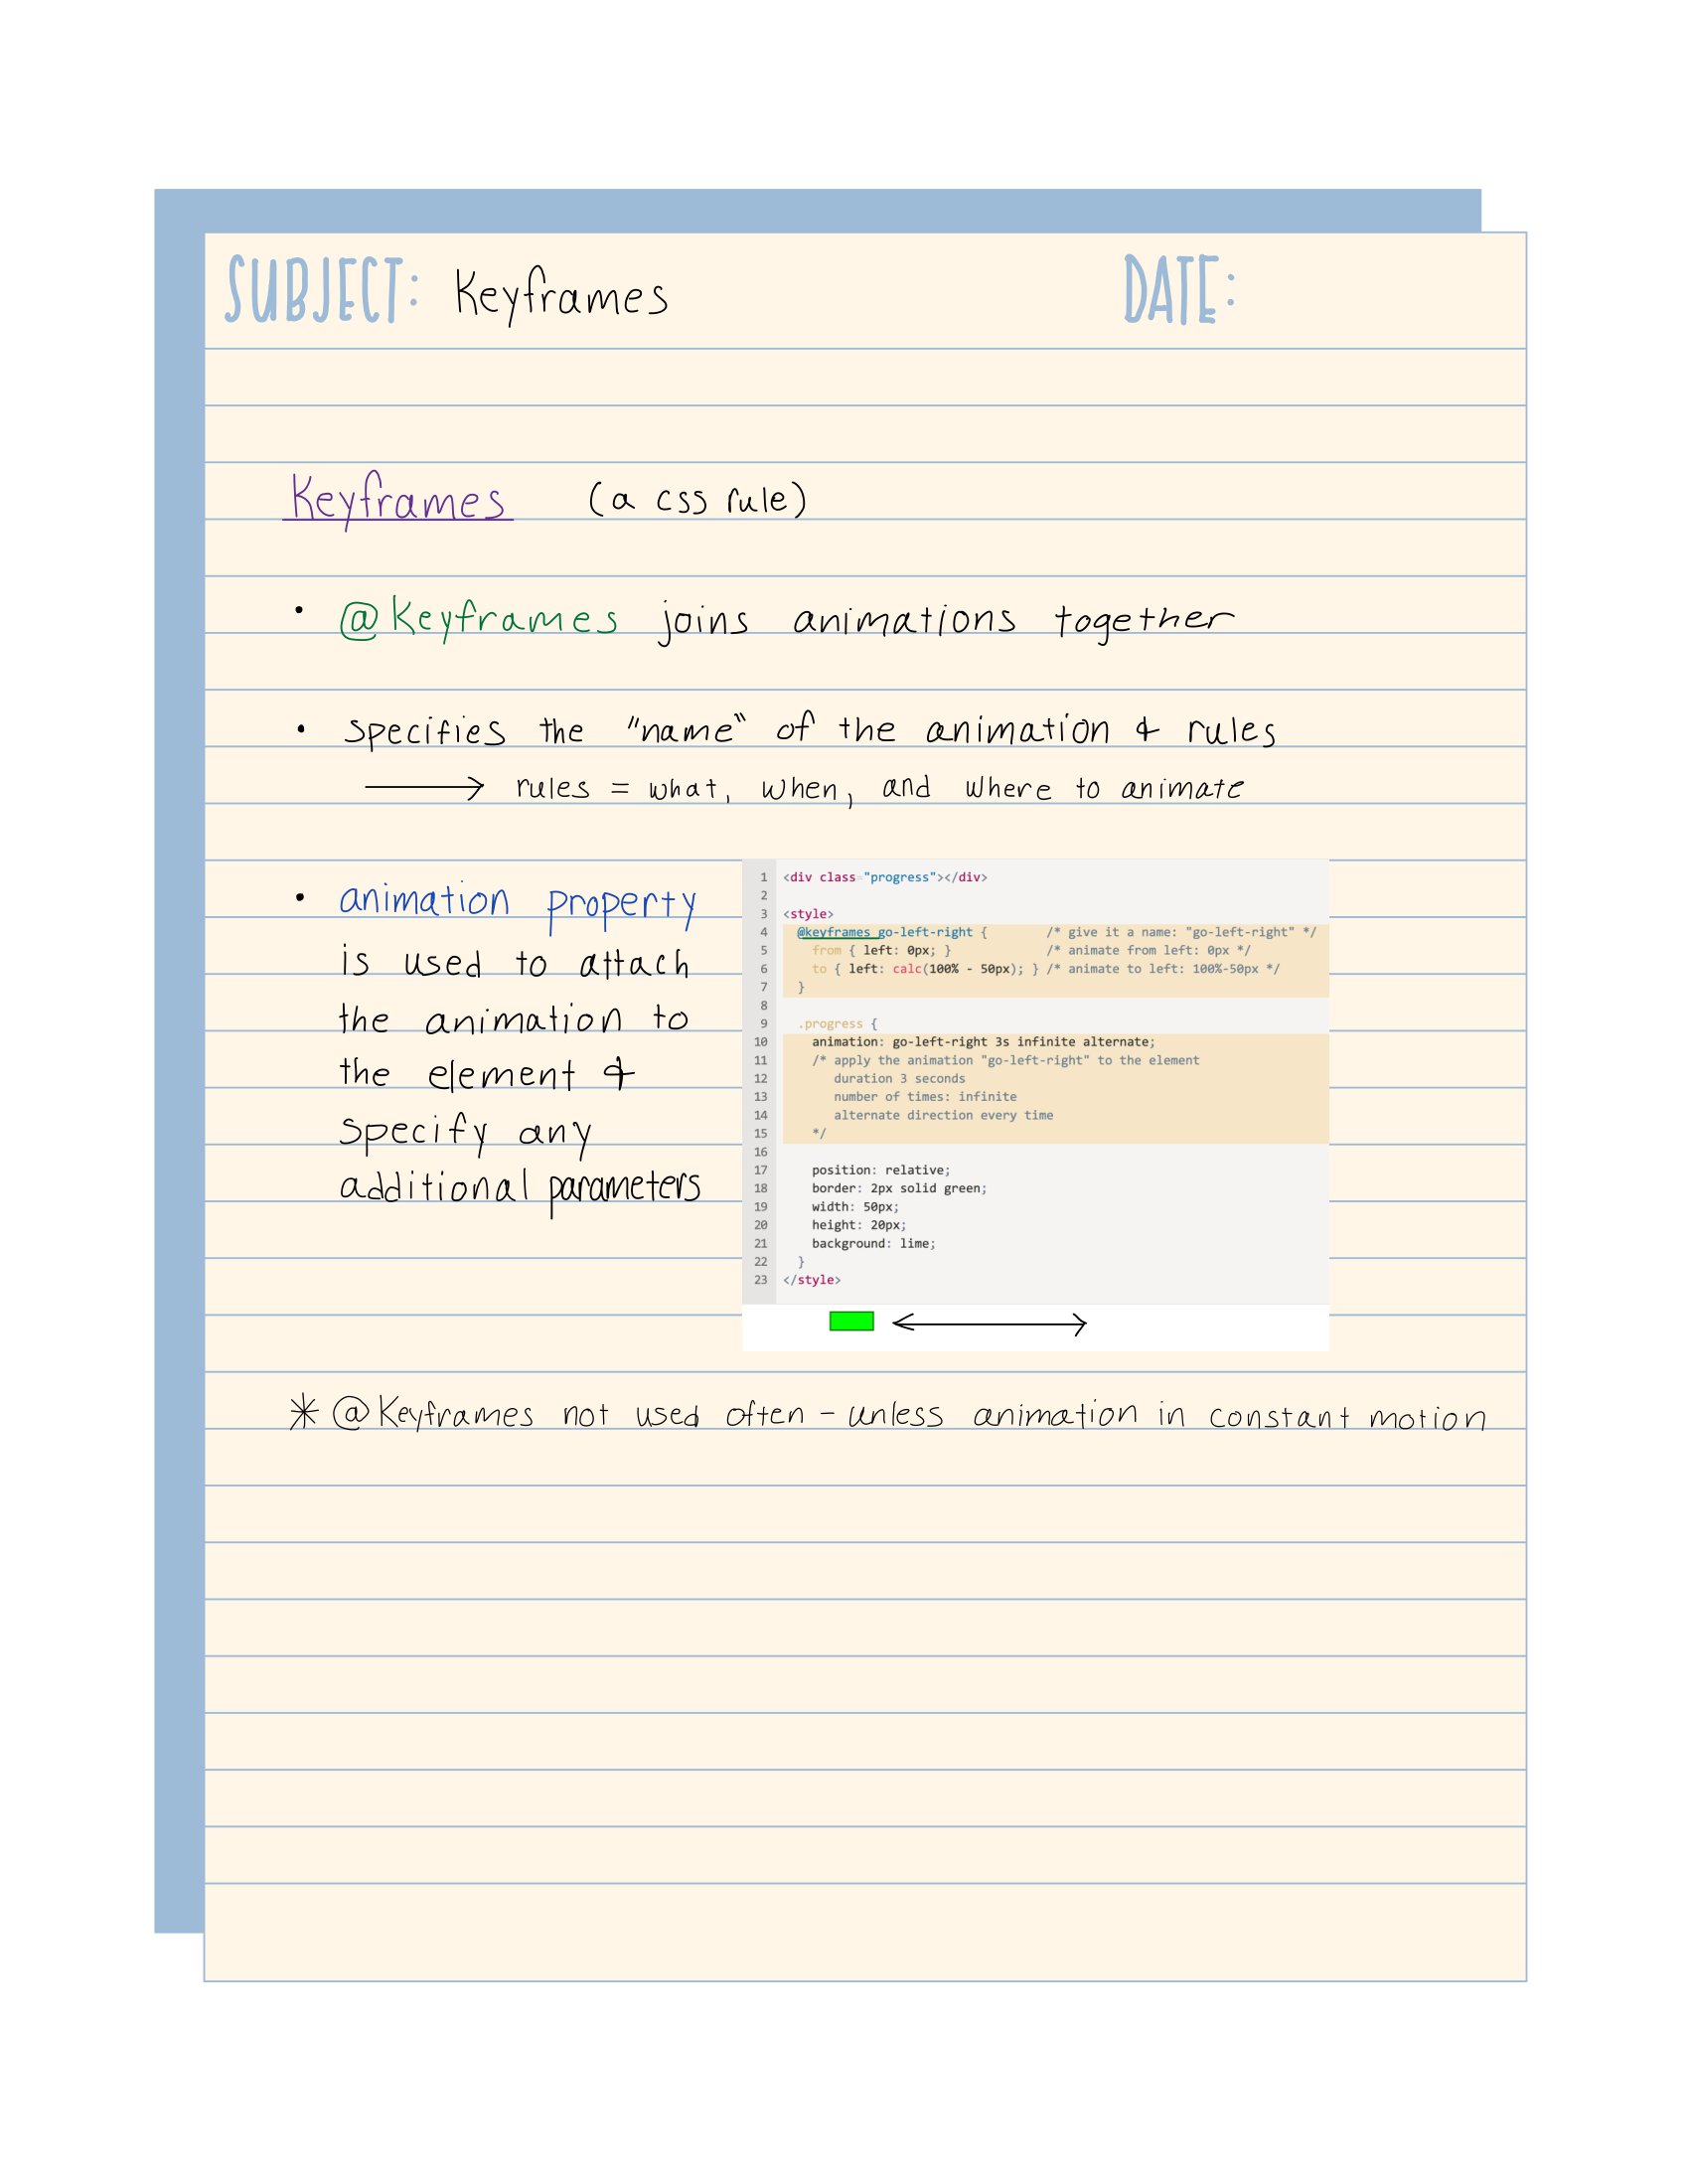 SUBJECT: Keyframes DATE:
Keyframes (a css rule)
• @Keyframes joins animations together
• specifies the "name" of the animation & rules
⟶ rules = what, when, and where to animate
• animation property
is used to attach
the animation to
the element &
specify any
additional parameters
1 <div class="progress"></div>
2
3 <style>
4   @keyframes go-left-right {        /* give it a name: "go-left-right" */
5     from { left: 0px; }             /* animate from left: 0px */
6     to { left: calc(100% - 50px); } /* animate to left: 100%-50px */
7   }
8
9   .progress {
10     animation: go-left-right 3s infinite alternate;
11     /* apply the animation "go-left-right" to the element
12        duration 3 seconds
13        number of times: infinite
14        alternate direction every time
15     */
16
17     position: relative;
18     border: 2px solid green;
19     width: 50px;
20     height: 20px;
21     background: lime;
22   }
23 </style>
* @Keyframes not used often - unless animation in constant motion